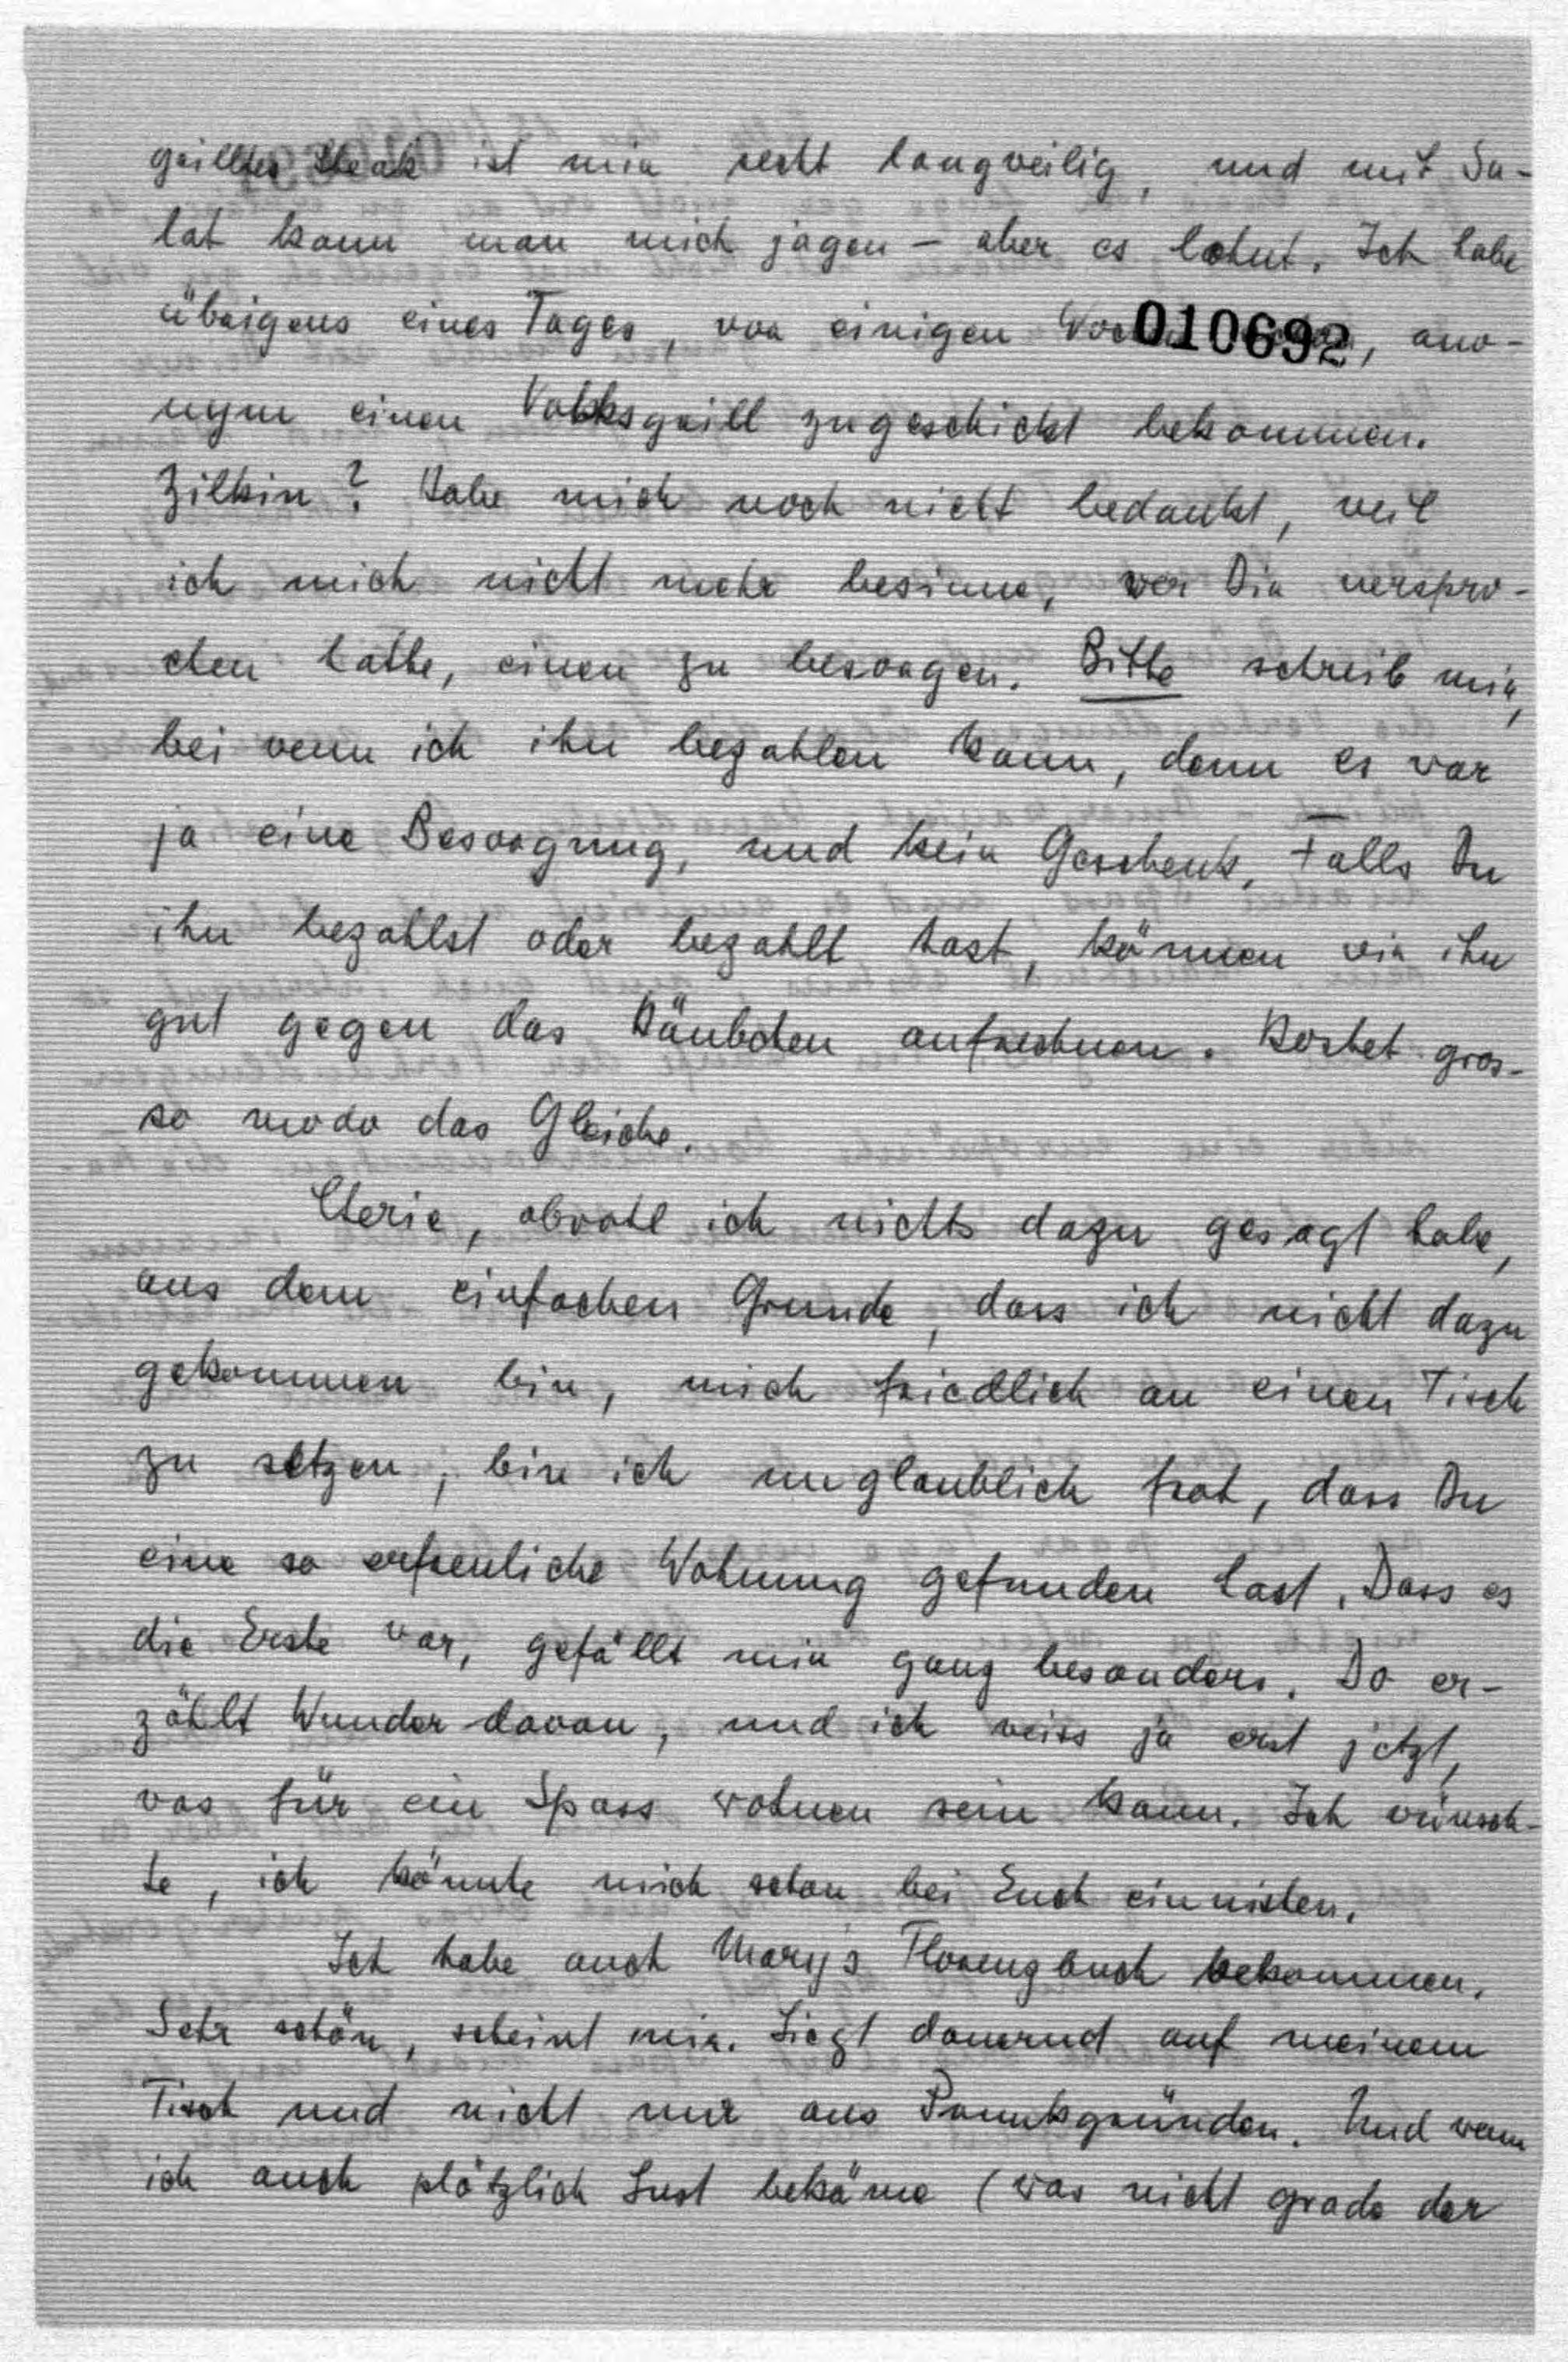 grilltes Steak ist mir recht langweilig, und mit Sa-
lat kann man mich jagen – aber es lohnt. Ich habe
übrigens eines Tages, vor einigen 010692, ano-
nym einen Volksgrill zugeschickt bekommen.
Zilkin? Habe mich noch nicht bedankt, weil
ich mich nicht mehr besinne, wer Dir verspro-
chen hatte, einen zu besorgen. Bitte schreib mir,
bei wem ich ihn bezahlen kann, denn es war
ja eine Besorgung, und kein Geschenk. Falls Du
ihn bezahlst oder bezahlt hast, können wir ihn
gut gegen das Häubchen aufrechnen. Kostet gros-
so modo das Gleiche.
Cherie, obwohl ich nichts dazu gesagt habe,
aus dem einfachen Grunde, dass ich nicht dazu
gekommen bin, mich friedlich an einen Tisch
zu setzen, bin ich unglaublich froh, dass Du
eine so erfreuliche Wohnung gefunden hast. Dass es
die Erste war, gefällt mir ganz besonders. Do er-
zählt Wunder davon, und ich weiss ja erst jetzt,
was für ein Spass wohnen sein kann. Ich wünsch-
te, ich könnte mich schon bei Euch einnisten.
Ich habe auch Mary's Florenzbuch bekommen.
Sehr schön, scheint mir. Liegt dauernd auf meinem
Tisch und nicht nur aus Prunkgründen. Und wenn
ich auch plötzlich Lust bekäme (was nicht grade der